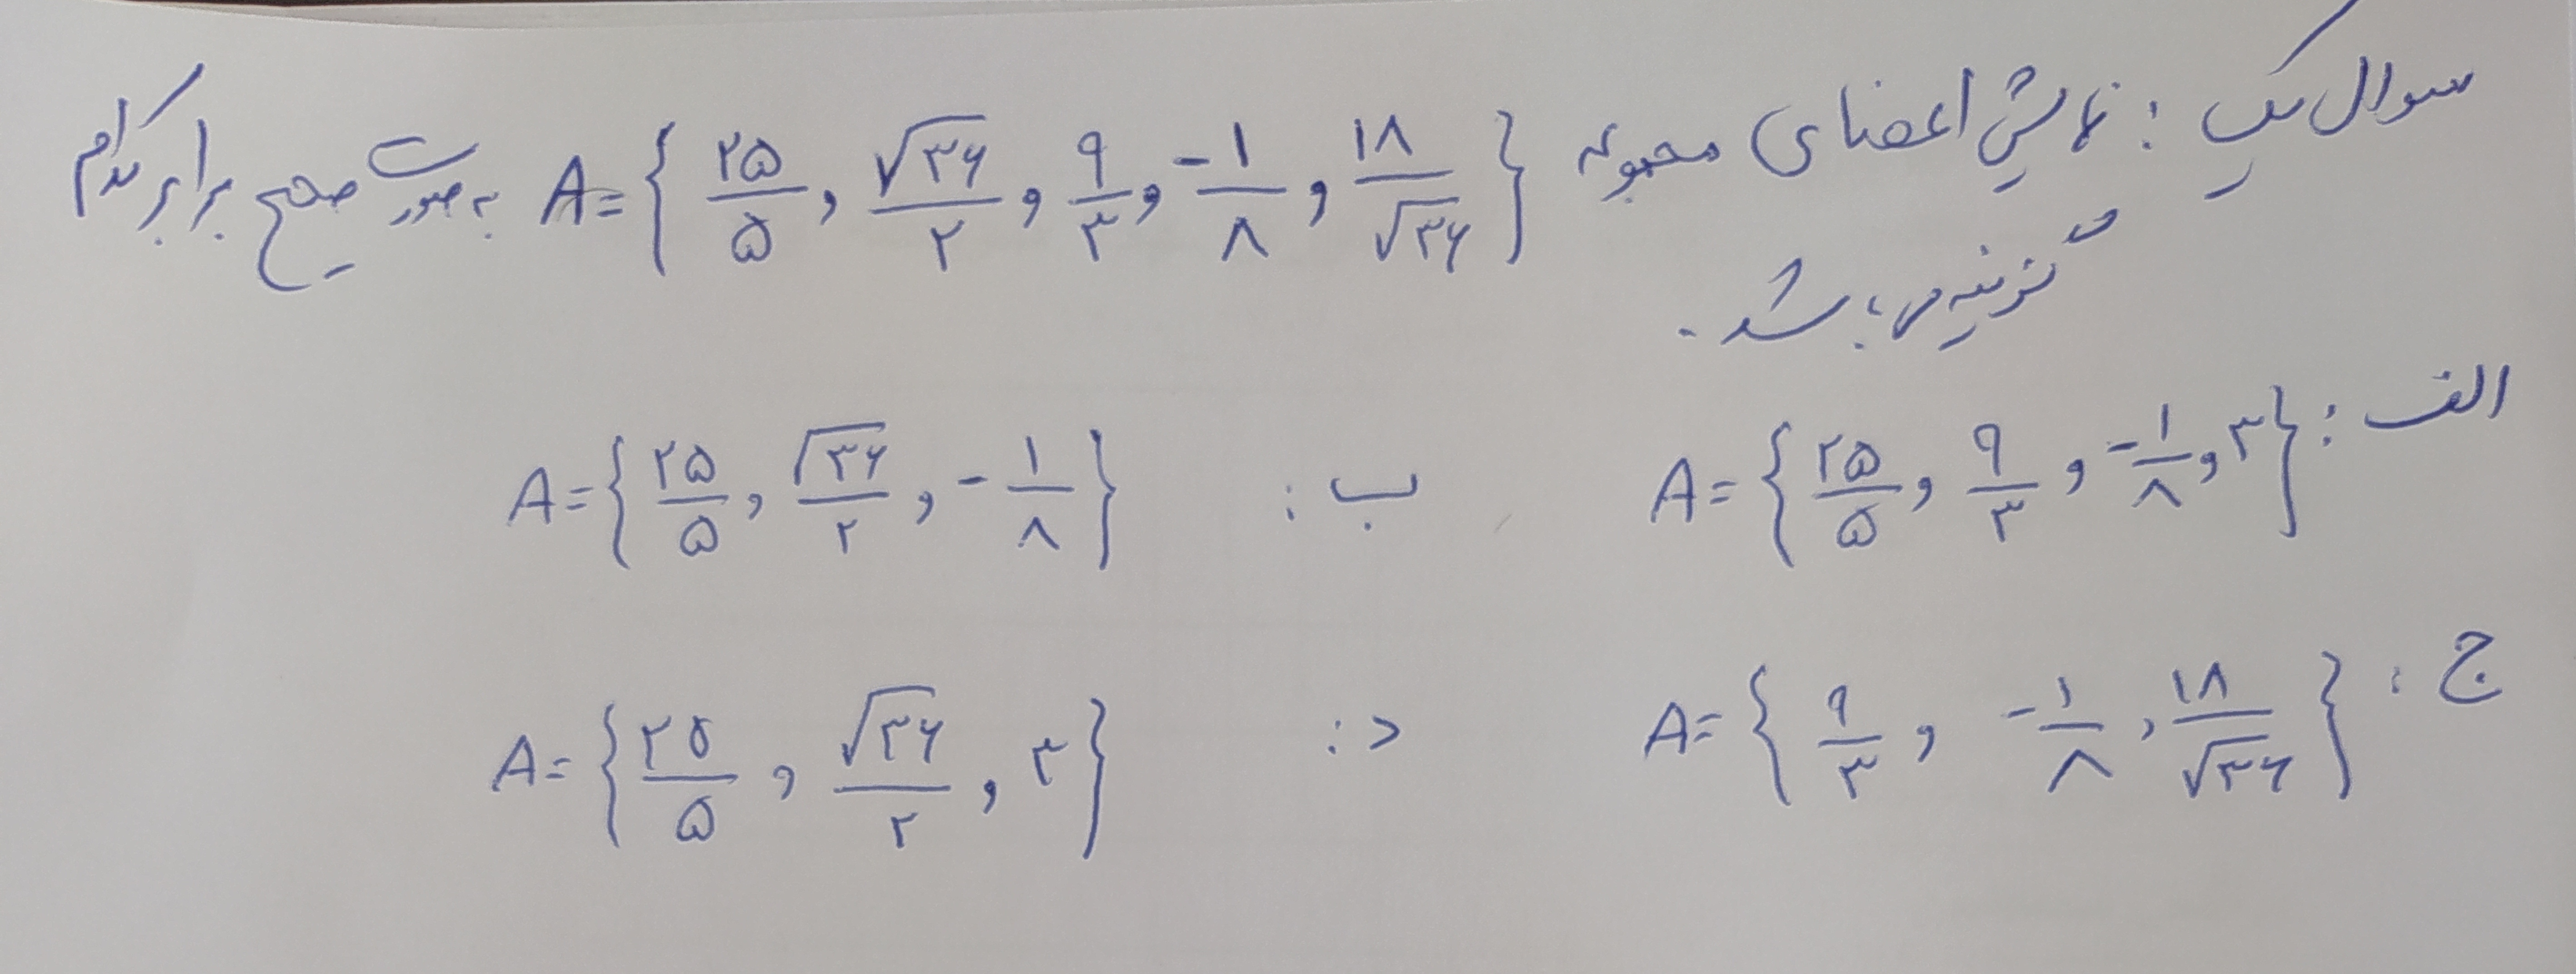 سوال یک : نمایش اعضای مجموعه A = { ۲۵/۵ , √۳۶/۲ , ۹/۳ , -۱/۸ , ۱۸/√۳۶ } به صورت صحیح برابر کدام
گزینه می باشد .
الف : A = { ۲۵/۵ , ۹/۳ , -۱/۸ , ۳ } ب : A = { ۲۵/۵ , √۳۶/۲ , -۱/۸ }
ج : A = { ۹/۳ , -۱/۸ , ۱۸/√۳۶ } د : A = { ۲۵/۵ , √۳۶/۲ , ۳ }